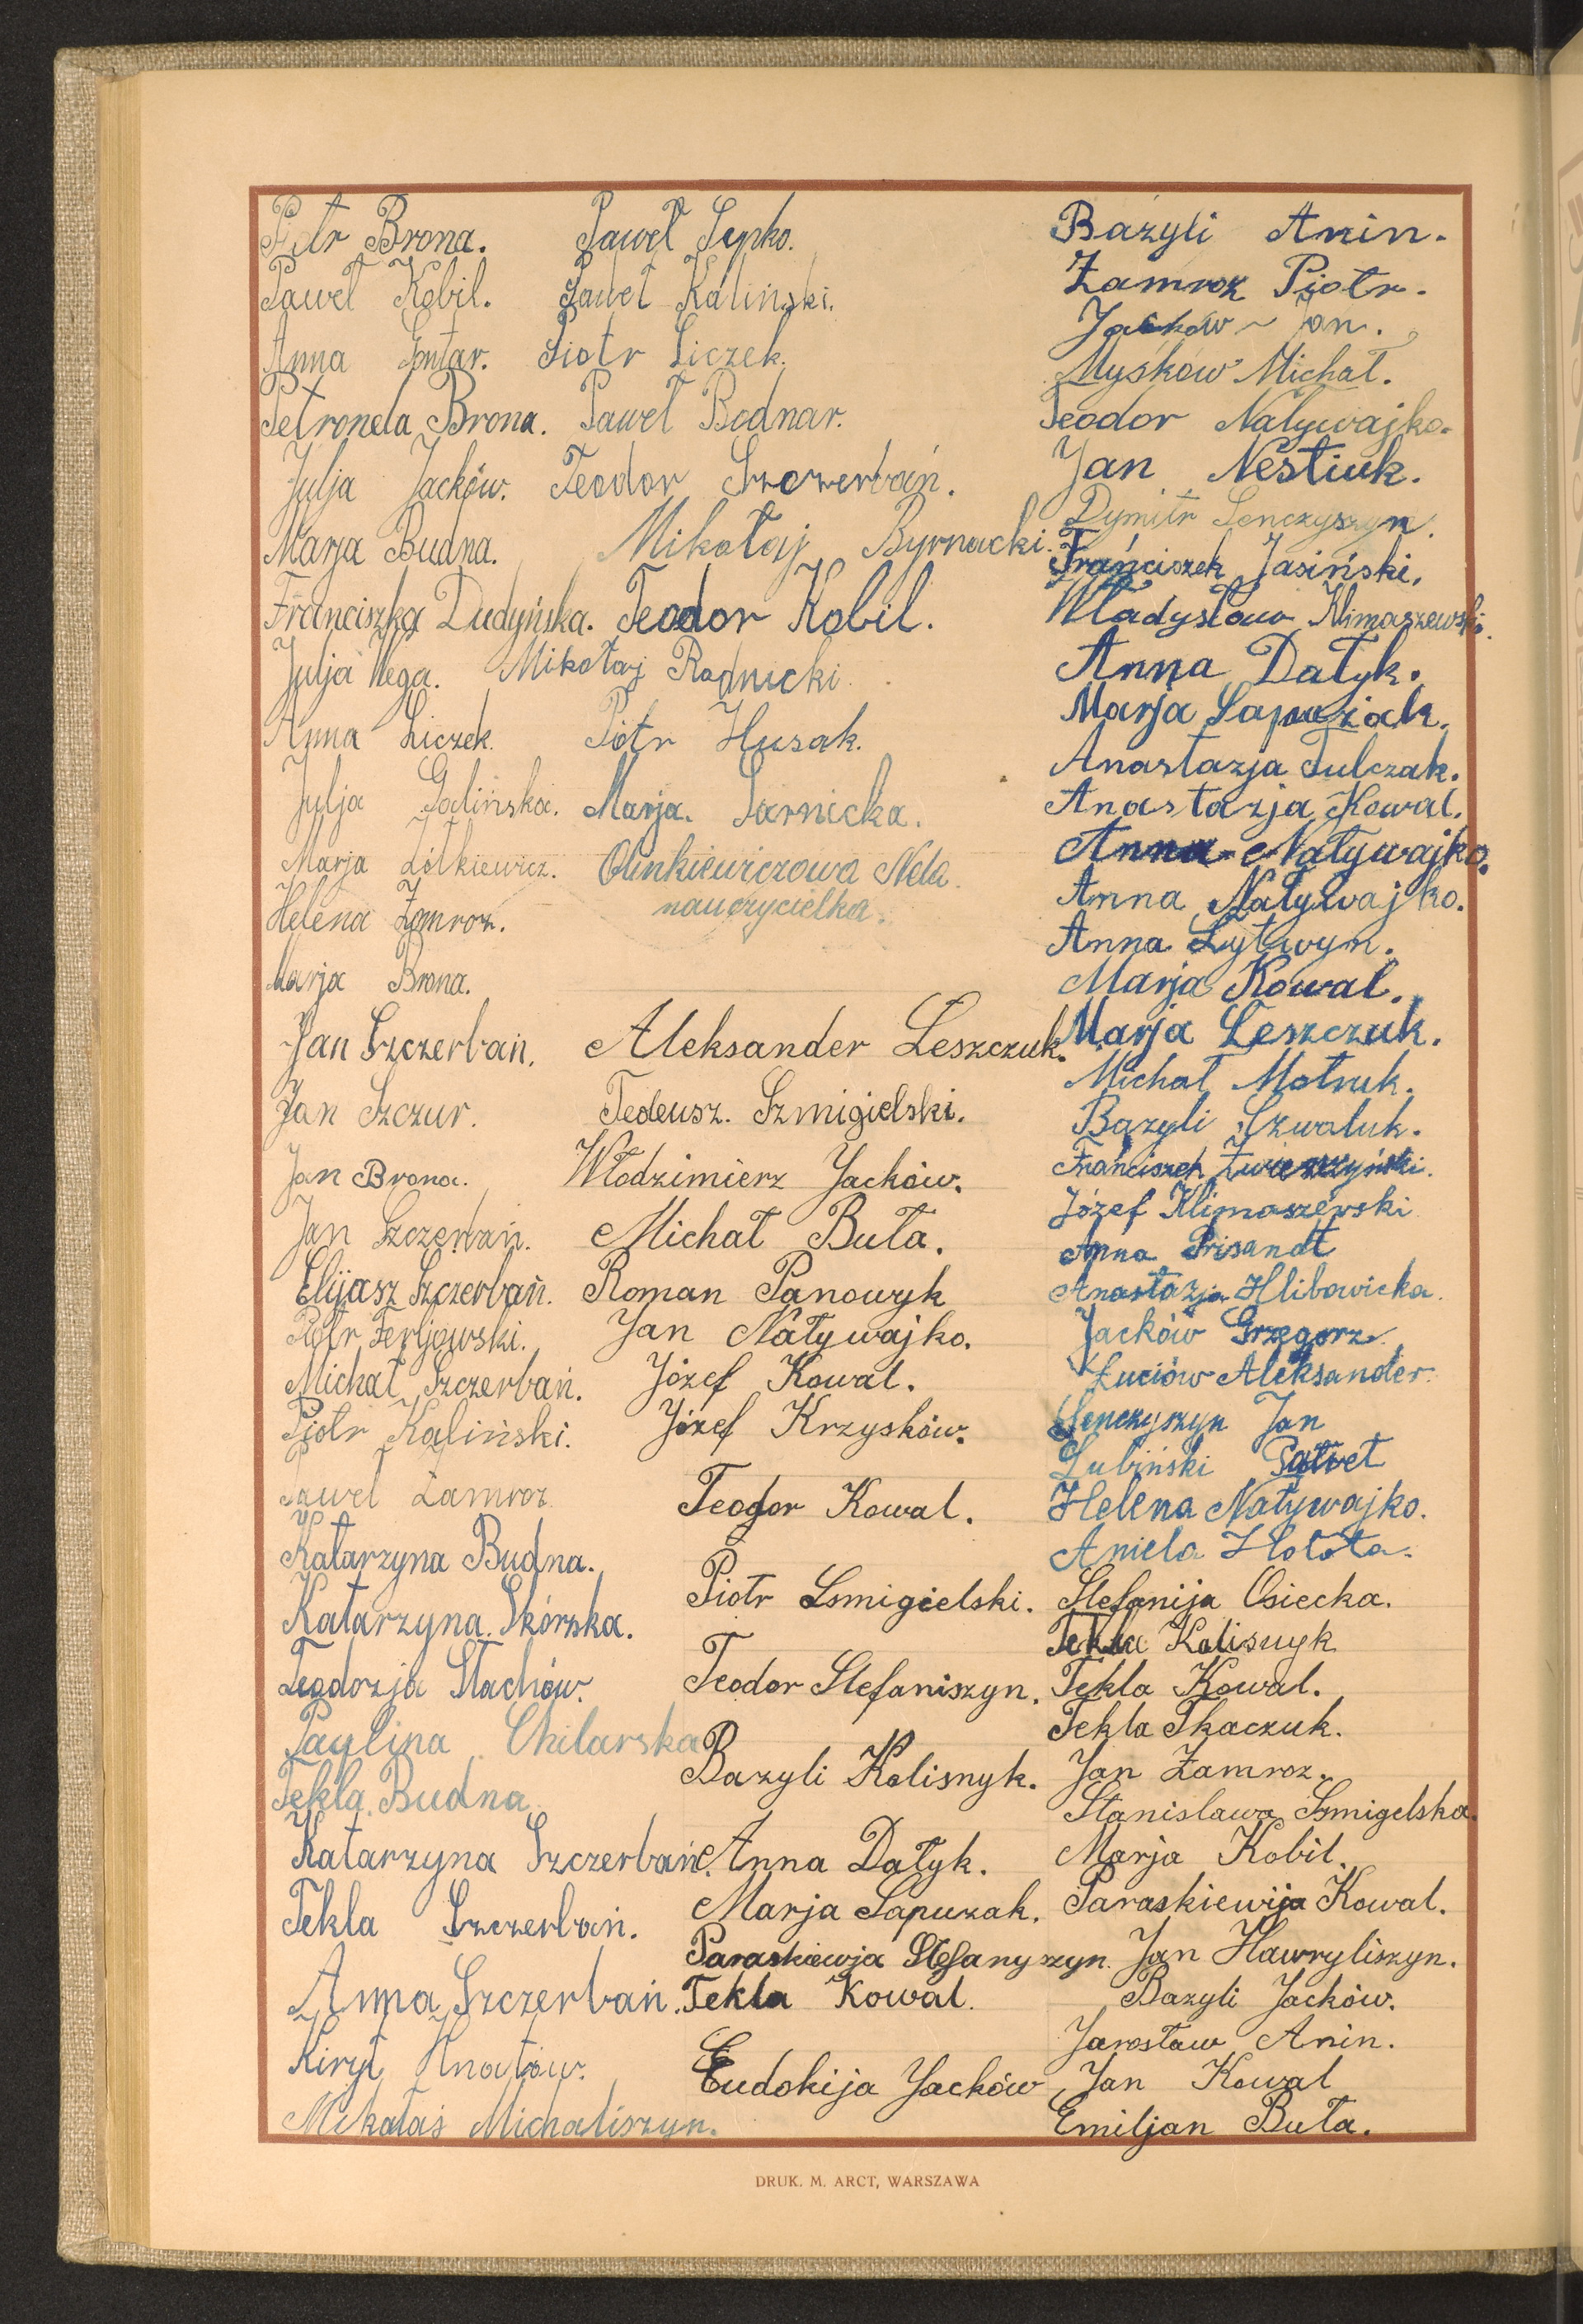 Piotr Brona.
Paweł Kobil.
Anna Gmtar.
Petronela Brona.
Julja Jacków.
Marja Budna.
Franciszka Dudyńska.
Julja Wega.
Anna Liczek.
Julja Galińska.
Marja Żółkiewicz.
Helena Zamroz.
Marja Brona.
Jan Szczerbań.
Jan Szczur.
Jan Brona.
Jan Szczerbań.
Elijasz Szczerbań.
Piotr Ferljowski.
Michał Szczerbań.
Piotr Kaliński.
Paweł Zamroz.
Katarzyna Budna.
Katarzyna Skórska.
Teodozja Stachów.
Paylina Chilarska
Tekla Budna
Katarzyna Szczerbań.
Tekla Szczerbań.
Anna Szczerbań.
Kirył Hnatów.
Mikołaś Michaliszyn.
Paweł Sepko.
Paweł Kaliński.
Piotr Liczek.
Paweł Bodnar.
Teodor Szczerbań.
Mikołaj Byrnacki.
Teodor Kobil.
Mikołaj Radnicki.
Piotr Husak.
Marja. Sarnicka.
Olinkiewiczowa Nela.
nauczycielka.
Aleksander Leszczuk.
Tedeusz. Szmigielski.
Włodzimierz Jacków.
Michał Buła.
Roman Panowyk
Jan Natywajko.
Józef Kowal.
Józef Krzysków.
Teodor Kowal.
Piotr Smigielski.
Teodor Stefaniszyn.
Bazyli Kolisnyk.
Anna Datyk.
Marja Sapuzak.
Paraskiewja Stefanyszyn.
Tekla Kowal.
Eudokija Jacków
Bazyli Anin.
Zamroz Piotr.
Jacków Jan.
Myśków Michał.
Teodor Natywajko.
Jan Nestiuk.
Dymitr Senczyszyn.
Franciszek Jasiński.
Władysław Klimaszewski.
Anna Datyk.
Marja Sapuziak.
Anastazja Tulczak.
Anastazja Kowal.
Anna Natywajko.
Anna Natywajko.
Anna Lytwyn.
Marja Kowal.
Marja Leszczuk.
Michał Motruk.
Bazyli Szwaluk.
Franciszek
Józef Klimaszewski
Anna Prisandt
Anastazja Hlibowicka.
Jacków Grzegorz.
Łuciów Aleksander.
Senczyszyn Jan
Lubiński Paweł
Helena Natywajko.
Aniela Hołota.
Stefanija Osiecka.
Tekla Kolisnyk
Tekla Kowal.
Tekla Tkaczuk.
Jan Zamroz.
Stanisława Smigelska.
Marja Kobil.
Paraskiewija Kowal.
Jan Hawryliszyn.
Bazyli Jacków.
Jarosław Anin.
Jan Kowal
Emiljan Buła.
DRUK. M. ARCT, WARSZAWA